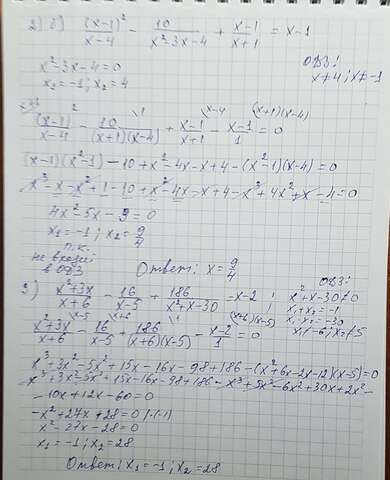 2) б) (x-1)²/(x-4) - 10/(x²-3x-4) + (x-1)/(x+1) = x-1
ОДЗ:
x≠4; x≠-1
x²-3x-4=0
x₁=-1; x₂=4
(x-1)²/(x-4) - 10/((x+1)(x-4)) + (x-1)/(x+1) - (x-1)/1 = 0
(x-1)(x²-1)-10+x²-4x-x+4-(x²-1)(x-4)=0
x³-x-x²+1-10+x²-4x-x+4-x³+4x²+x-4=0
4x²-5x-9=0
x₁=-1; x₂=9/4
т.к.
не входит
в ОДЗ
Ответ: x=9/4
3) (x²+3x)/(x+6) - 16/(x-5) + 186/(x²+x-30) = x-2
ОДЗ:
x²+x-30≠0
x₁+x₂=-1
x₁·x₂=-30
x≠-6; x≠5
(x²+3x)/(x+6) - 16/(x-5) + 186/((x+6)(x-5)) - (x-2)/1 = 0
x³+3x²-5x²+15x-16x-98+186-(x²+6x-2x-12)(x-5)=0
x³+3x²-5x²+15x-16x-98+186-x³+5x²-6x²+30x+2x²-
-10x+12x-60=0
-x²+27x+28=0 |·(-1)
x²-27x-28=0
x₁=-1; x₂=28
Ответ: x₁=-1; x₂=28